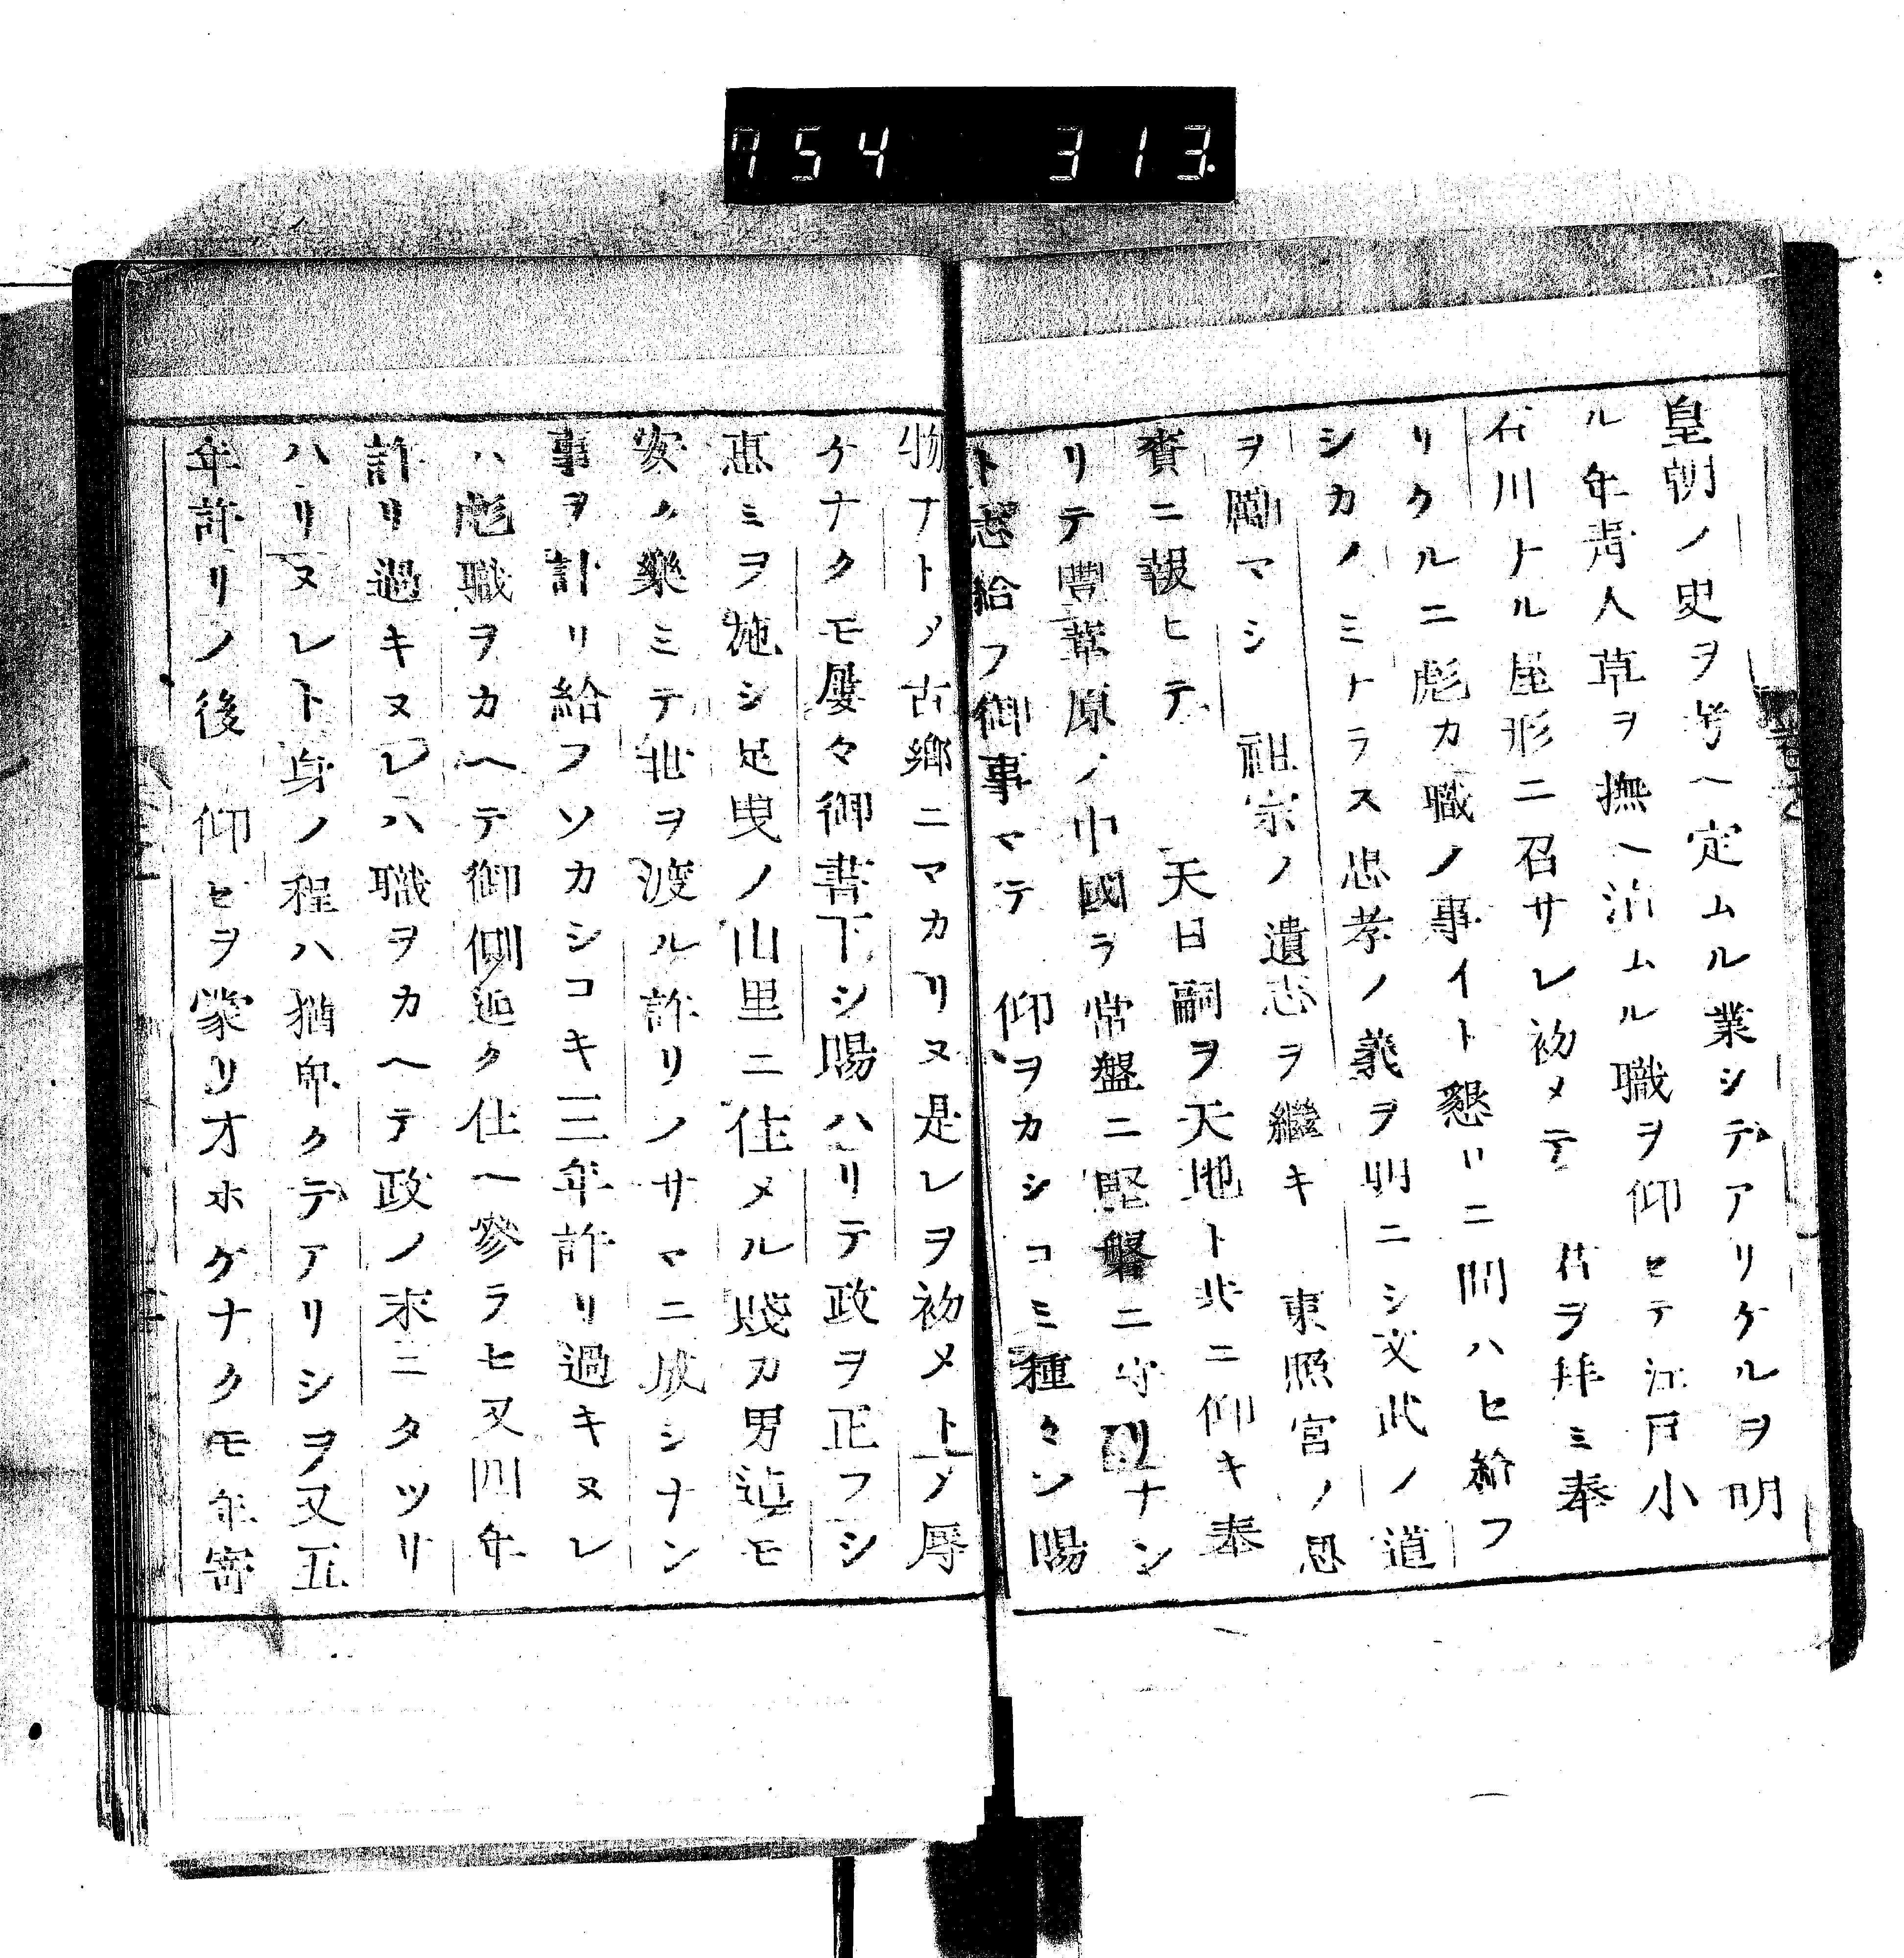 754 313.
皇朝ノ史ヲ考ヘ定ムル業シテアリケルヲ明
ル年靑人草ヲ撫ヘ治ムル職ヲ仰セテ江戸小
石川ナル屋形ニ召サレ初メテ 君ヲ拜ミ奉
リクルニ彪カ職ノ事イト懇リニ問ハヒ給フ
シカノミナラス忠孝ノ義ヲ明ニシ文武ノ道
ヲ勵マシ 祖宗ノ遺志ヲ繼キ 東照宮ノ恩
賚ニ報ヒテ 天日嗣ヲ天地ト共ニ仰キ奉
リテ豐葦原ノ中國ヲ常盤ニ堅磐ニ守リナン
ト志給フ御事マテ 仰ヲカシコミ種々ン賜
物ナトメ古鄕ニマカリヌ是レヲ初メトメ辱
ケナクモ屢々御書下シ賜ハリテ政ヲ正フシ
惠ミヲ施シ足曳ノ山里ニ住メル賤カ男迠モ
安ク樂ミテ世ヲ渡ル許リノサマニ成シナン
事ヲ計リ給フソカシコキ三年許リ過キヌレ
ハ彪職ヲカヘテ御側近ク仕ヘ參ラヒ又四年
許リ過キヌレハ職ヲカヘテ政ノ末ニタツリ
ハリヌレト身ノ程ハ猶卑クテアリシヲ又五
年許リノ後 仰ヒヲ蒙リオホケナクモ年寄